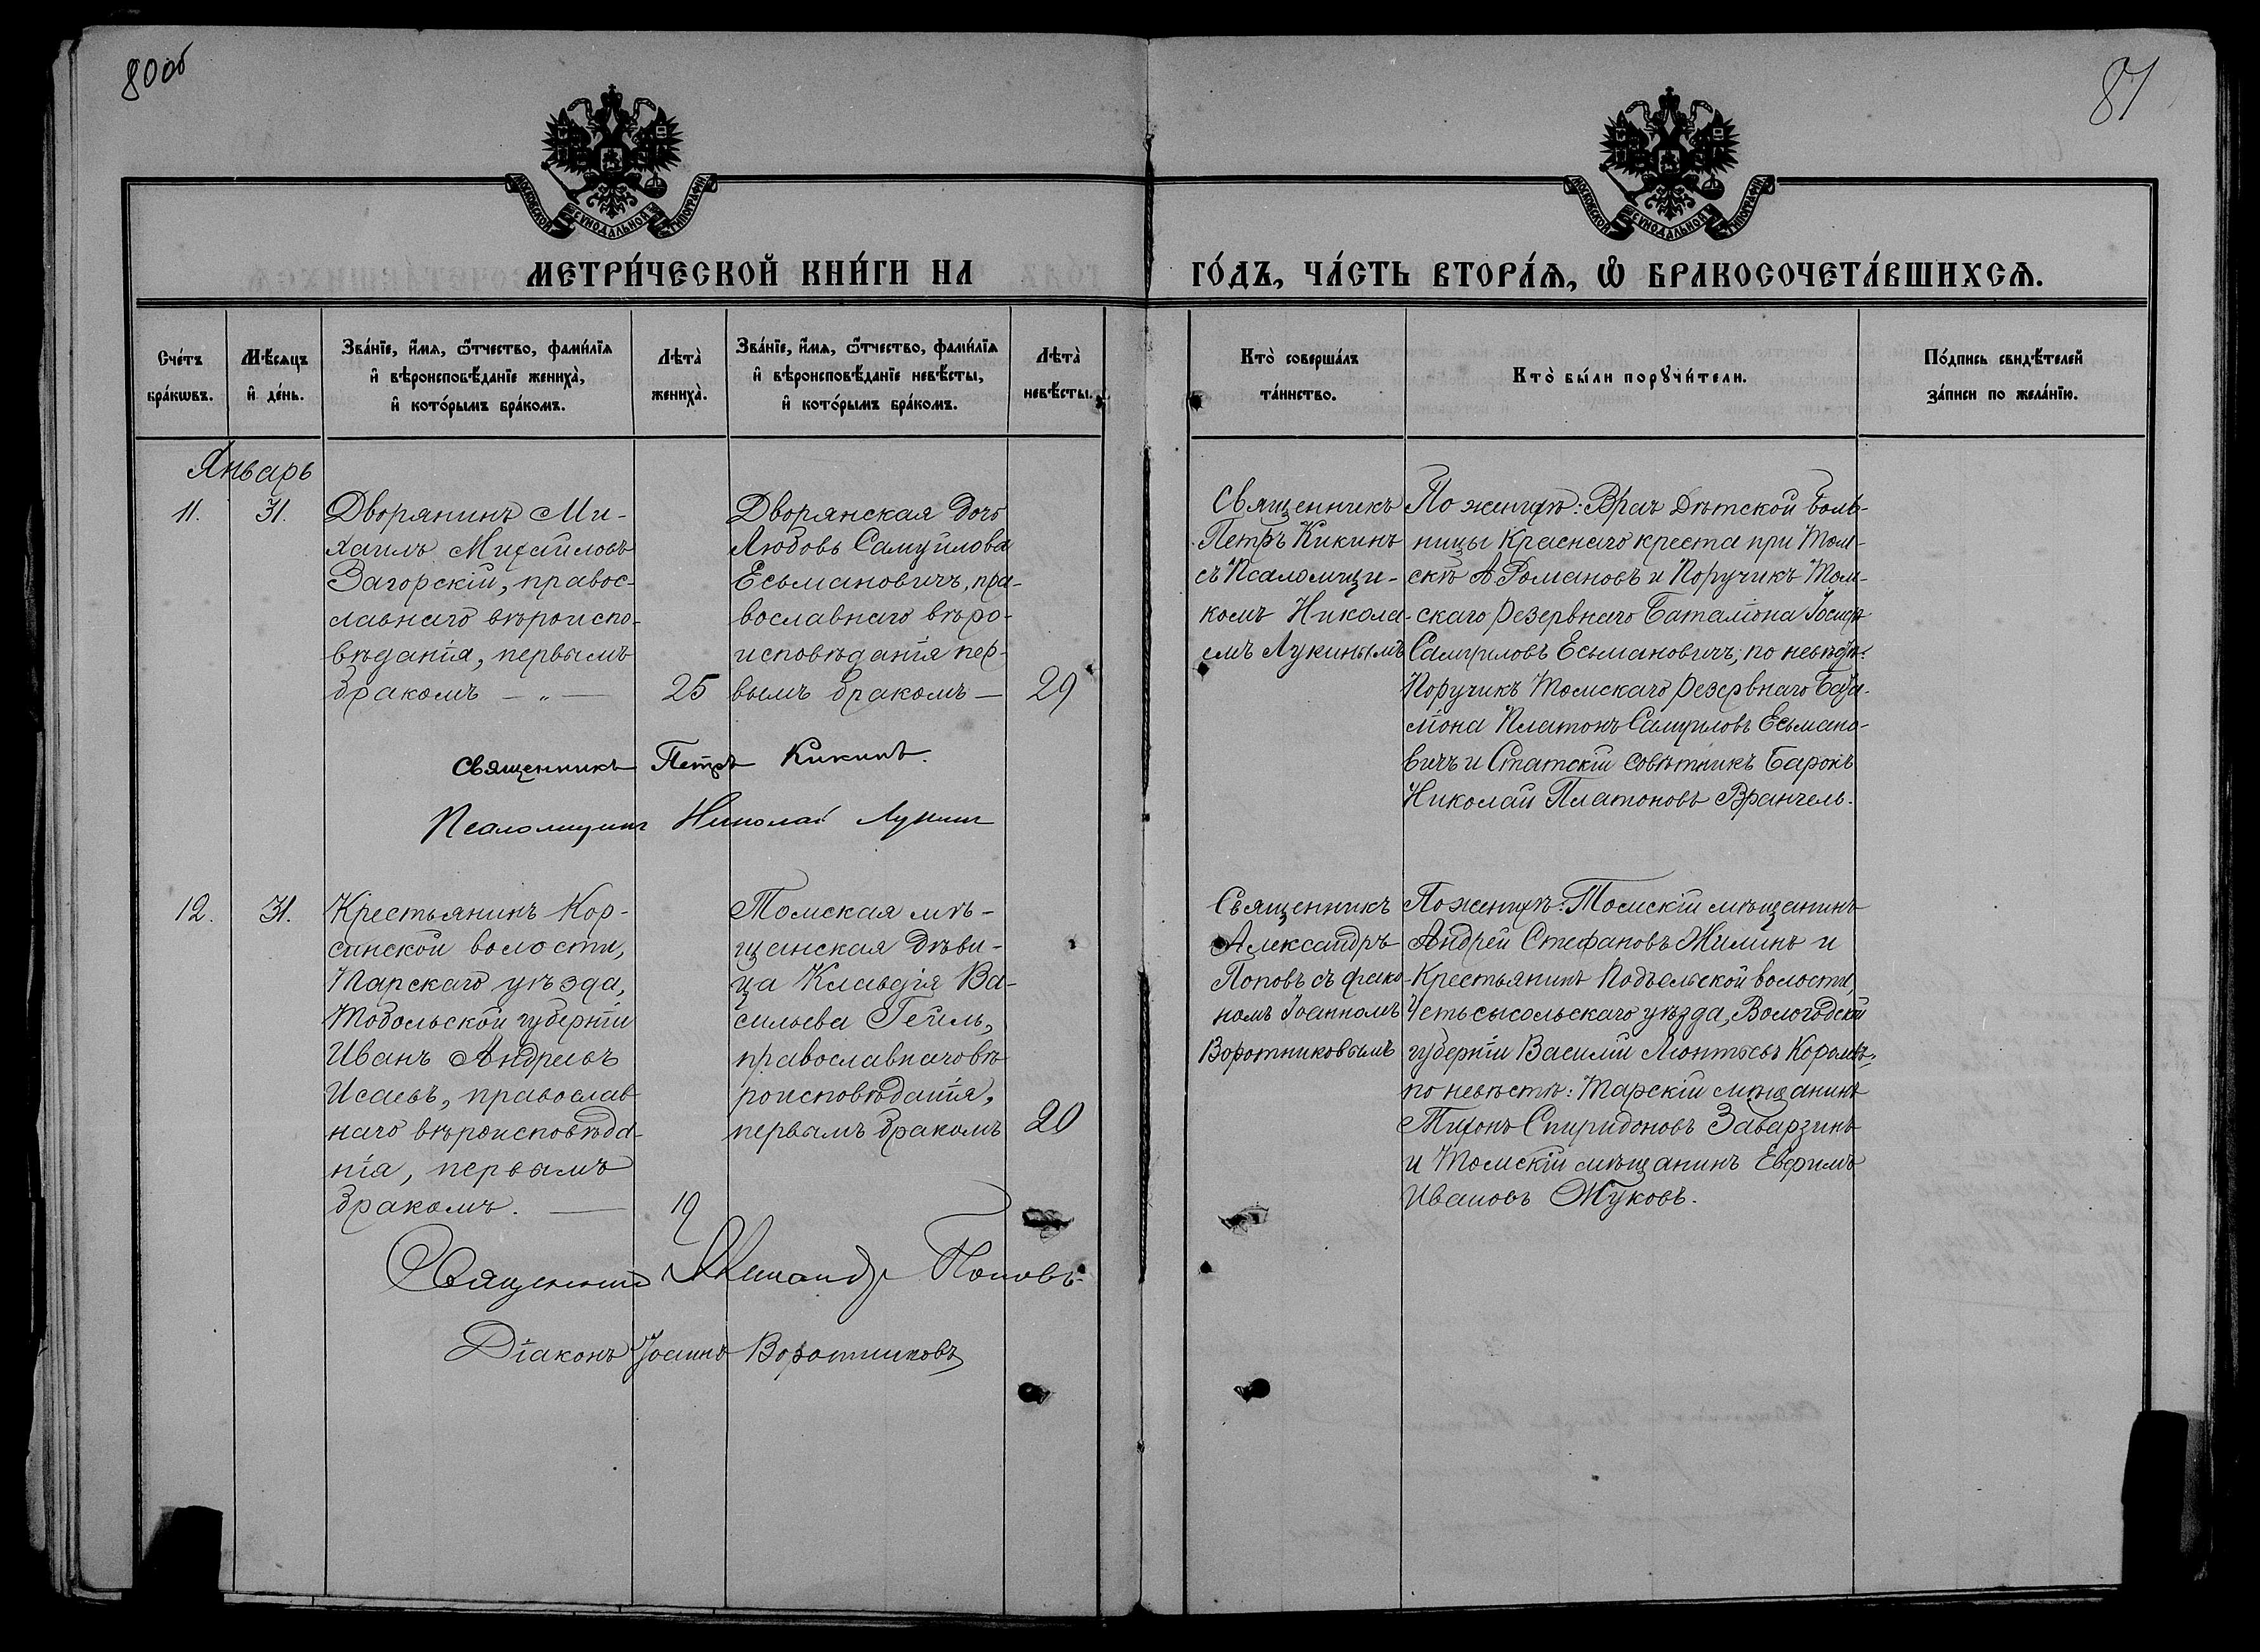 80 об
81
МОСКОВСКОЙ СУНОДАЛЬНОЙ ТИПОГРАФИИ
МОСКОВСКОЙ СУНОДАЛЬНОЙ ТИПОГРАФИИ
МЕТРИ́ЧЕСКОЙ КНИ́ГИ НА
ГО́ДЪ, ЧА́СТЬ ВТОРА́Ѧ, Ѽ БРАКОСОЧЕТА́ВШИХСѦ.
Сче́тъ
бра́кѡвъ.
Мѣ́сѧцъ
и҆ де́нь.
Зва́нїе, и҆́мѧ, ѻ҆́тчество, фами́лїѧ
и҆ вѣроисповѣ́данїе жениха̀,
и҆ кото́рымъ бра́комъ.
Лѣ́та̀
жениха̀.
Зва́нїе, и҆́мѧ, ѻ҆́тчество, фами́лїѧ
и҆ вѣроисповѣ́данїе невѣ́сты,
и҆ кото́рымъ бра́комъ.
Лѣ́та̀
невѣ́сты.
Кто̀ соверша́лъ
та́инство.
Кто̀ бы́ли порꙋчи́тели.
По́дпись свидѣ́телей
за́писи по жела́нїю.
Январь
11.
31.
Дворянинъ Ми-
хаилъ Михайловъ
Загорскій, правос-
лавнаго вѣроиспо-
вѣданія, первымъ
бракомъ — „ —
25
Дворянская дочь
Любовь Самуйлова
Есьмановичъ, пра-
вославнаго вѣро-
исповѣданія пер-
вымъ бракомъ —
29
Священникъ
Петръ Кикинъ
съ Псаломщи-
комъ Никола-
емъ Лукинымъ
По женихѣ: Врач Дѣтской боль-
ницы Краснаго креста при Том-
скѣ А. Романовъ и Поручикъ Том-
скаго Резервнаго Баталіона Іосифъ
Самуиловъ Есьмановичъ; по невѣстѣ:
Поручикъ Томскаго Резервнаго Бата-
ліона Платонъ Самуиловъ Есьмано-
вичъ и Статскій Совѣтникъ Баронъ
Николай Платоновъ Врангель.
Священникъ Петръ Кикинъ.
Псаломщикъ Николай Лукин
12.
31.
Крестьянинъ Кор-
синской волости,
Тарскаго уѣзда,
Тобольской губерніи
Иванъ Андреевъ
Исаевъ, православ-
наго вѣроисповѣда-
нія, первымъ
бракомъ. —
19
Томская мѣ-
щанская дѣви-
ца Клавдія Ва-
сильева Гейль,
православнаго вѣ-
роисповѣданія,
первымъ бракомъ
20
Священникъ
Александръ
Поповъ съ діако-
номъ Іоанномъ
Воротниковымъ
По женихѣ: Томскій мѣщанинъ
Андрей Стефановъ Жилинъ и
Крестьянинъ Подъельской волости,
Устьсысольскаго уѣзда, Вологодской
губерніи Василій Леонтьевъ
по невѣстѣ: Тарскій мѣщанинъ
Тихонъ Спиридоновъ Заварзинъ
и Томскій мѣщанинъ Евфимъ
Ивановъ Жуковъ.
Священникъ Александр Поповъ
Діаконъ Іоаннъ Воротниковъ